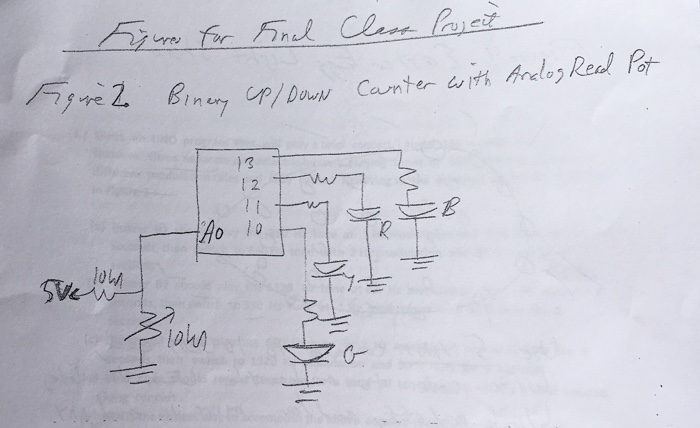 Figures for Final Class Project
Figure 2. Binary UP/DOWN Counter with Analog Read Pot
13
12
11
A0 10
B
R
Y
5V 10k
10k
G